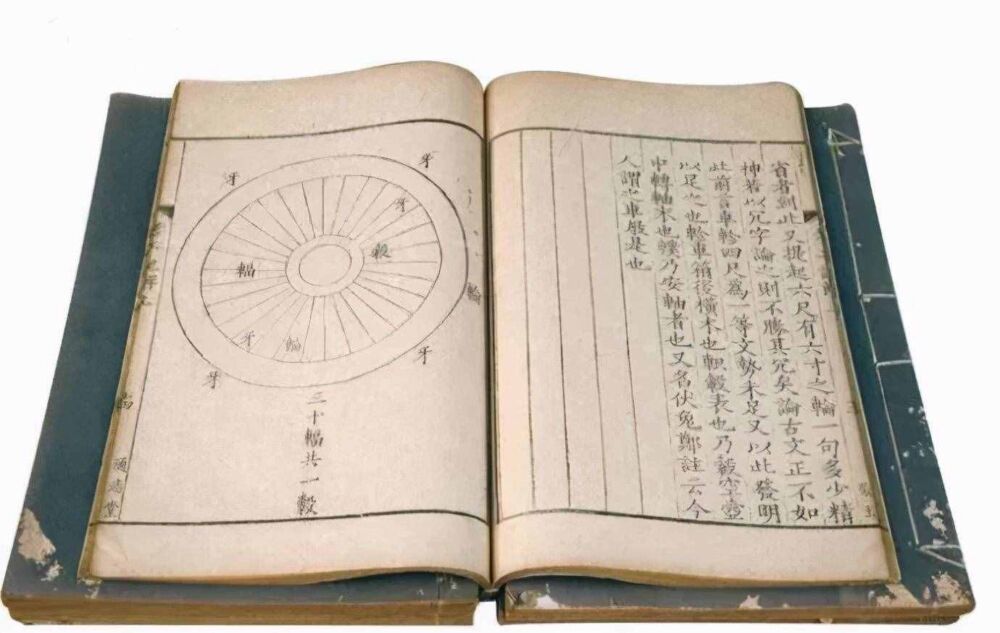 省者到此又提起六尺有六寸之輪一句多少精
神若以冗字論之則不勝其冗矣論古文正不如
此前言車軫四尺爲一等文勢未足又以此發明
以足之也軫車箱後橫木也軹轂表也乃轂空壺
中轉軸末也轐乃安軸者也又名伏兔鄭註云今
人謂之車是也
輪
牙
牙
牙
轂
輻
牙
輻
牙
牙
三十輻共一轂
通志堂